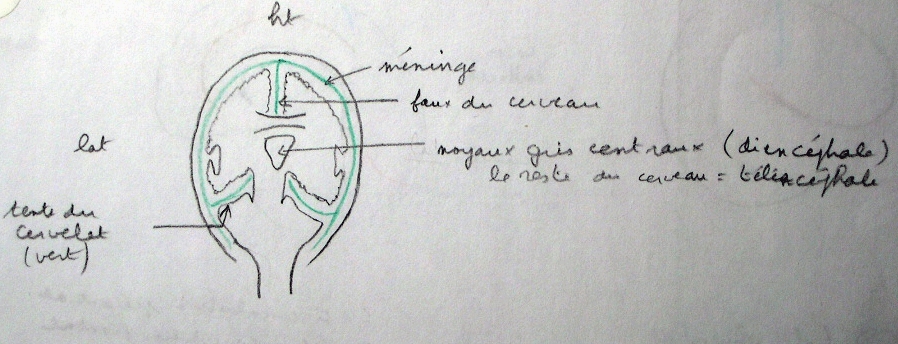 ht
méninge
faux du cerveau
lat
noyaux gris centraux (diencéphale)
le reste du cerveau = télencéphale
tente du
cervelet
(vert)